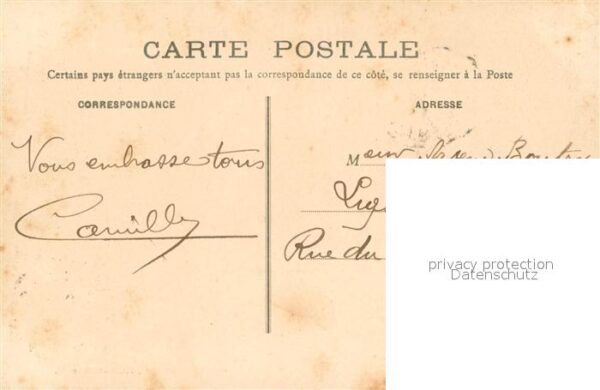 CARTE POSTALE
Certains pays étrangers n'acceptant pas la correspondance de ce côté, se renseigner à la Poste
CORRESPONDANCE
ADRESSE
Vous embrasse tous
Camille
M
Rue du
privacy protection
Datenschutz